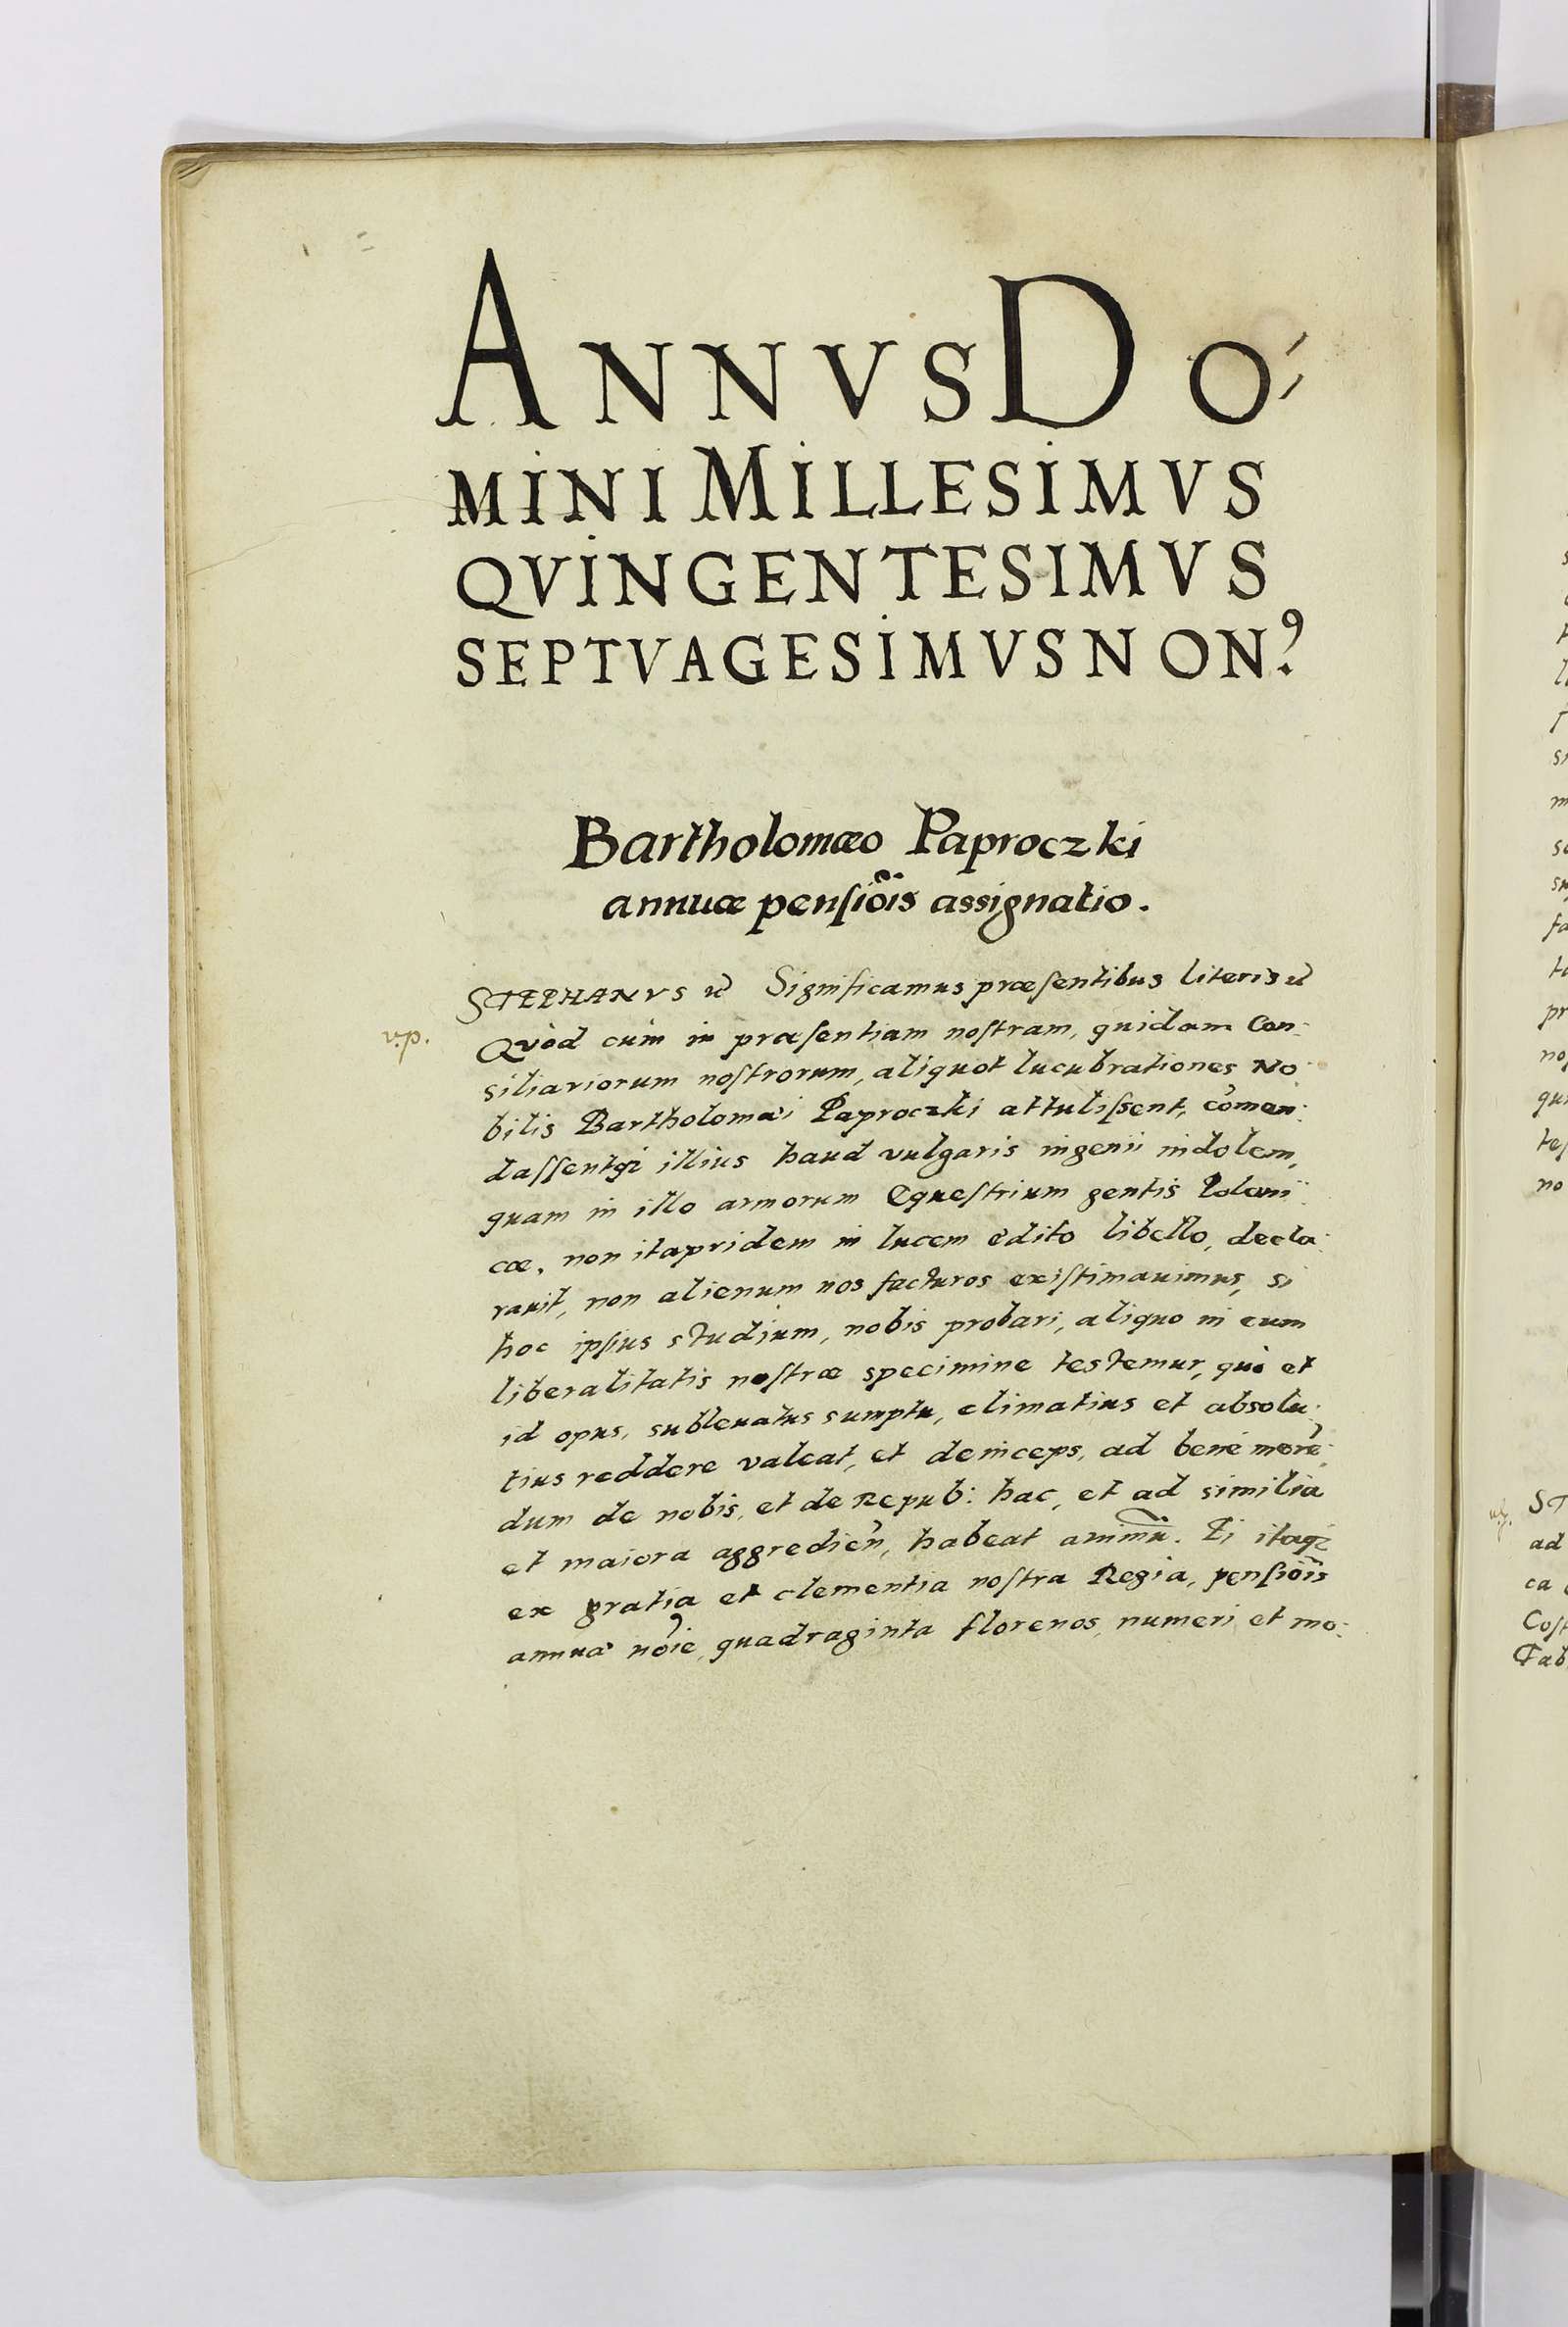 ANNVS DO
MINI MILLESIMVS
QVINGENTESIMVS
SEPTVAGESIMVS NONꝰ
Bartholomæo Paproczki
annuæ penſiõis assignatio.
STEPHANVS Significamus præſentibus literis
v.p.
Quòd cùm in præſentiam noſtram, quidam Con:
siliariorum noſtrorum, aliquot lucubrationes No:
bilis Bartholomæi Paproczki attuliſsent, cõmen:
daſſentq; illius haud vulgaris ingenii indolem,
quam in illo armorum Equeſtrium gentis Poloni:
cæ, non itapridem in lucem ędito libello, decla:
rauit, non alienum nos facturos exiſtimauimus, si
hoc ipſius studium, nobis probari, aliquo in eum
liberalitatis noſtræ specimine testemur, quò et
id opus, subleuatus sumptu, elimatius et absolu:
tius reddere valeat, et deinceps, ad benè merẽ:
dum de nobis, et de Repub: hac, et ad similia
et maiora aggredieñ, habeat animũ. Ei itaq;
ex gratia et clementia noſtra Regia, penſiõis
annuæ nõie, quadraginta florenos, numeri et mo: